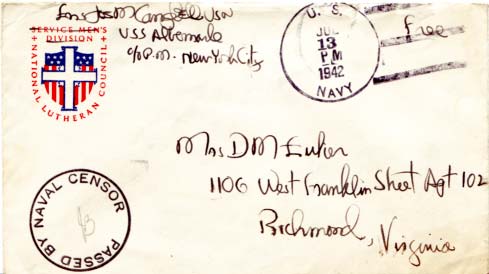 Ens Jos M Campbell USN
USS Albemarle
c/o P.M. New York City
SERVICE MEN'S
DIVISION
NATIONAL LUTHERAN COUNCIL
U. S.
JUL
13
PM
1942
NAVY
Free
Mrs D M Euker
1106 West Franklin Street Apt 102
Richmond, Virginia
PASSED BY NAVAL CENSOR